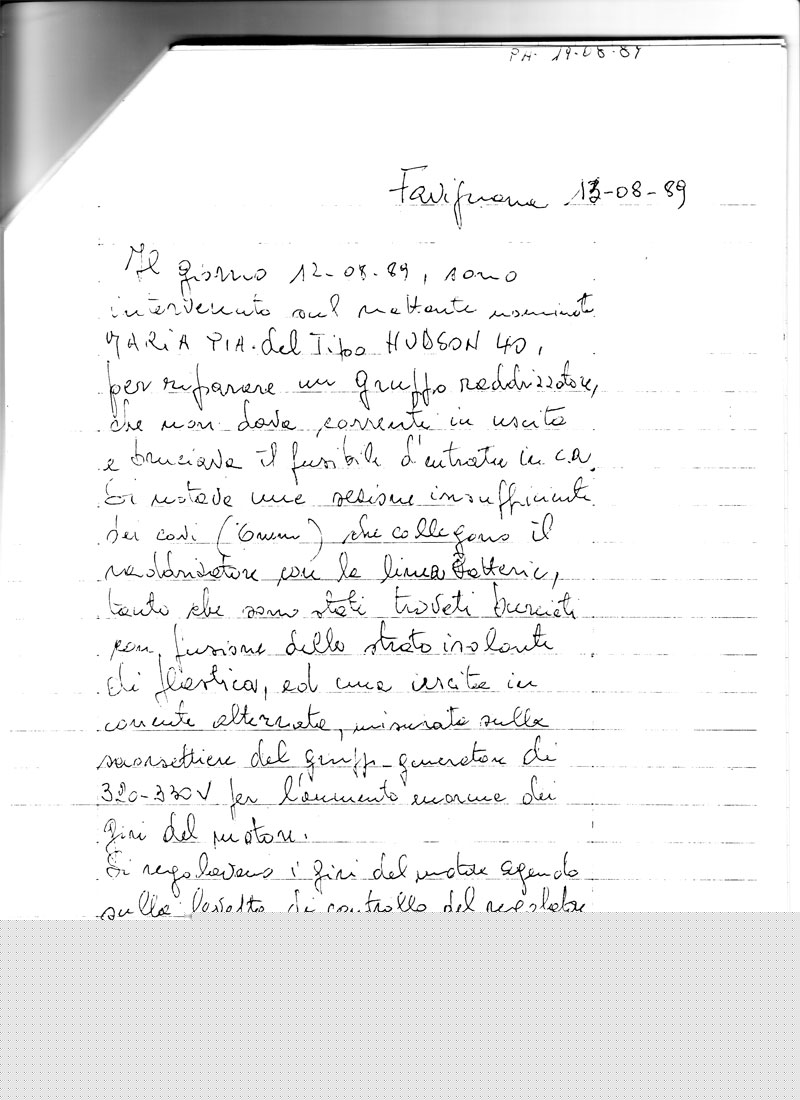 PA. 19-08-89
Favignana 13-08-89
Il giorno 12-08-89, sono
intervenuto sul nattante nominato
MARIA PIA del Tipo HUDSON 40,
per riparare un gruppo raddrizzatore,
che non dava corrente in uscita
e bruciava il fusibile d'entrata in c.a.
Si notava una sezione insufficiente
dei cavi (6mm) che collegano il
raddrizzatore con la linea Batterie,
tanto che sono stati trovati bruciati
con fusione dello strato isolante
di plastica, ed una uscita in
corrente alternata, misurata sulla
morsettiera del gruppo-generatore di
320-330V per l'aumento enorme dei
giri del motore.
Si regolavano i giri del motore agendo
sulla levetta di controllo del regolatore